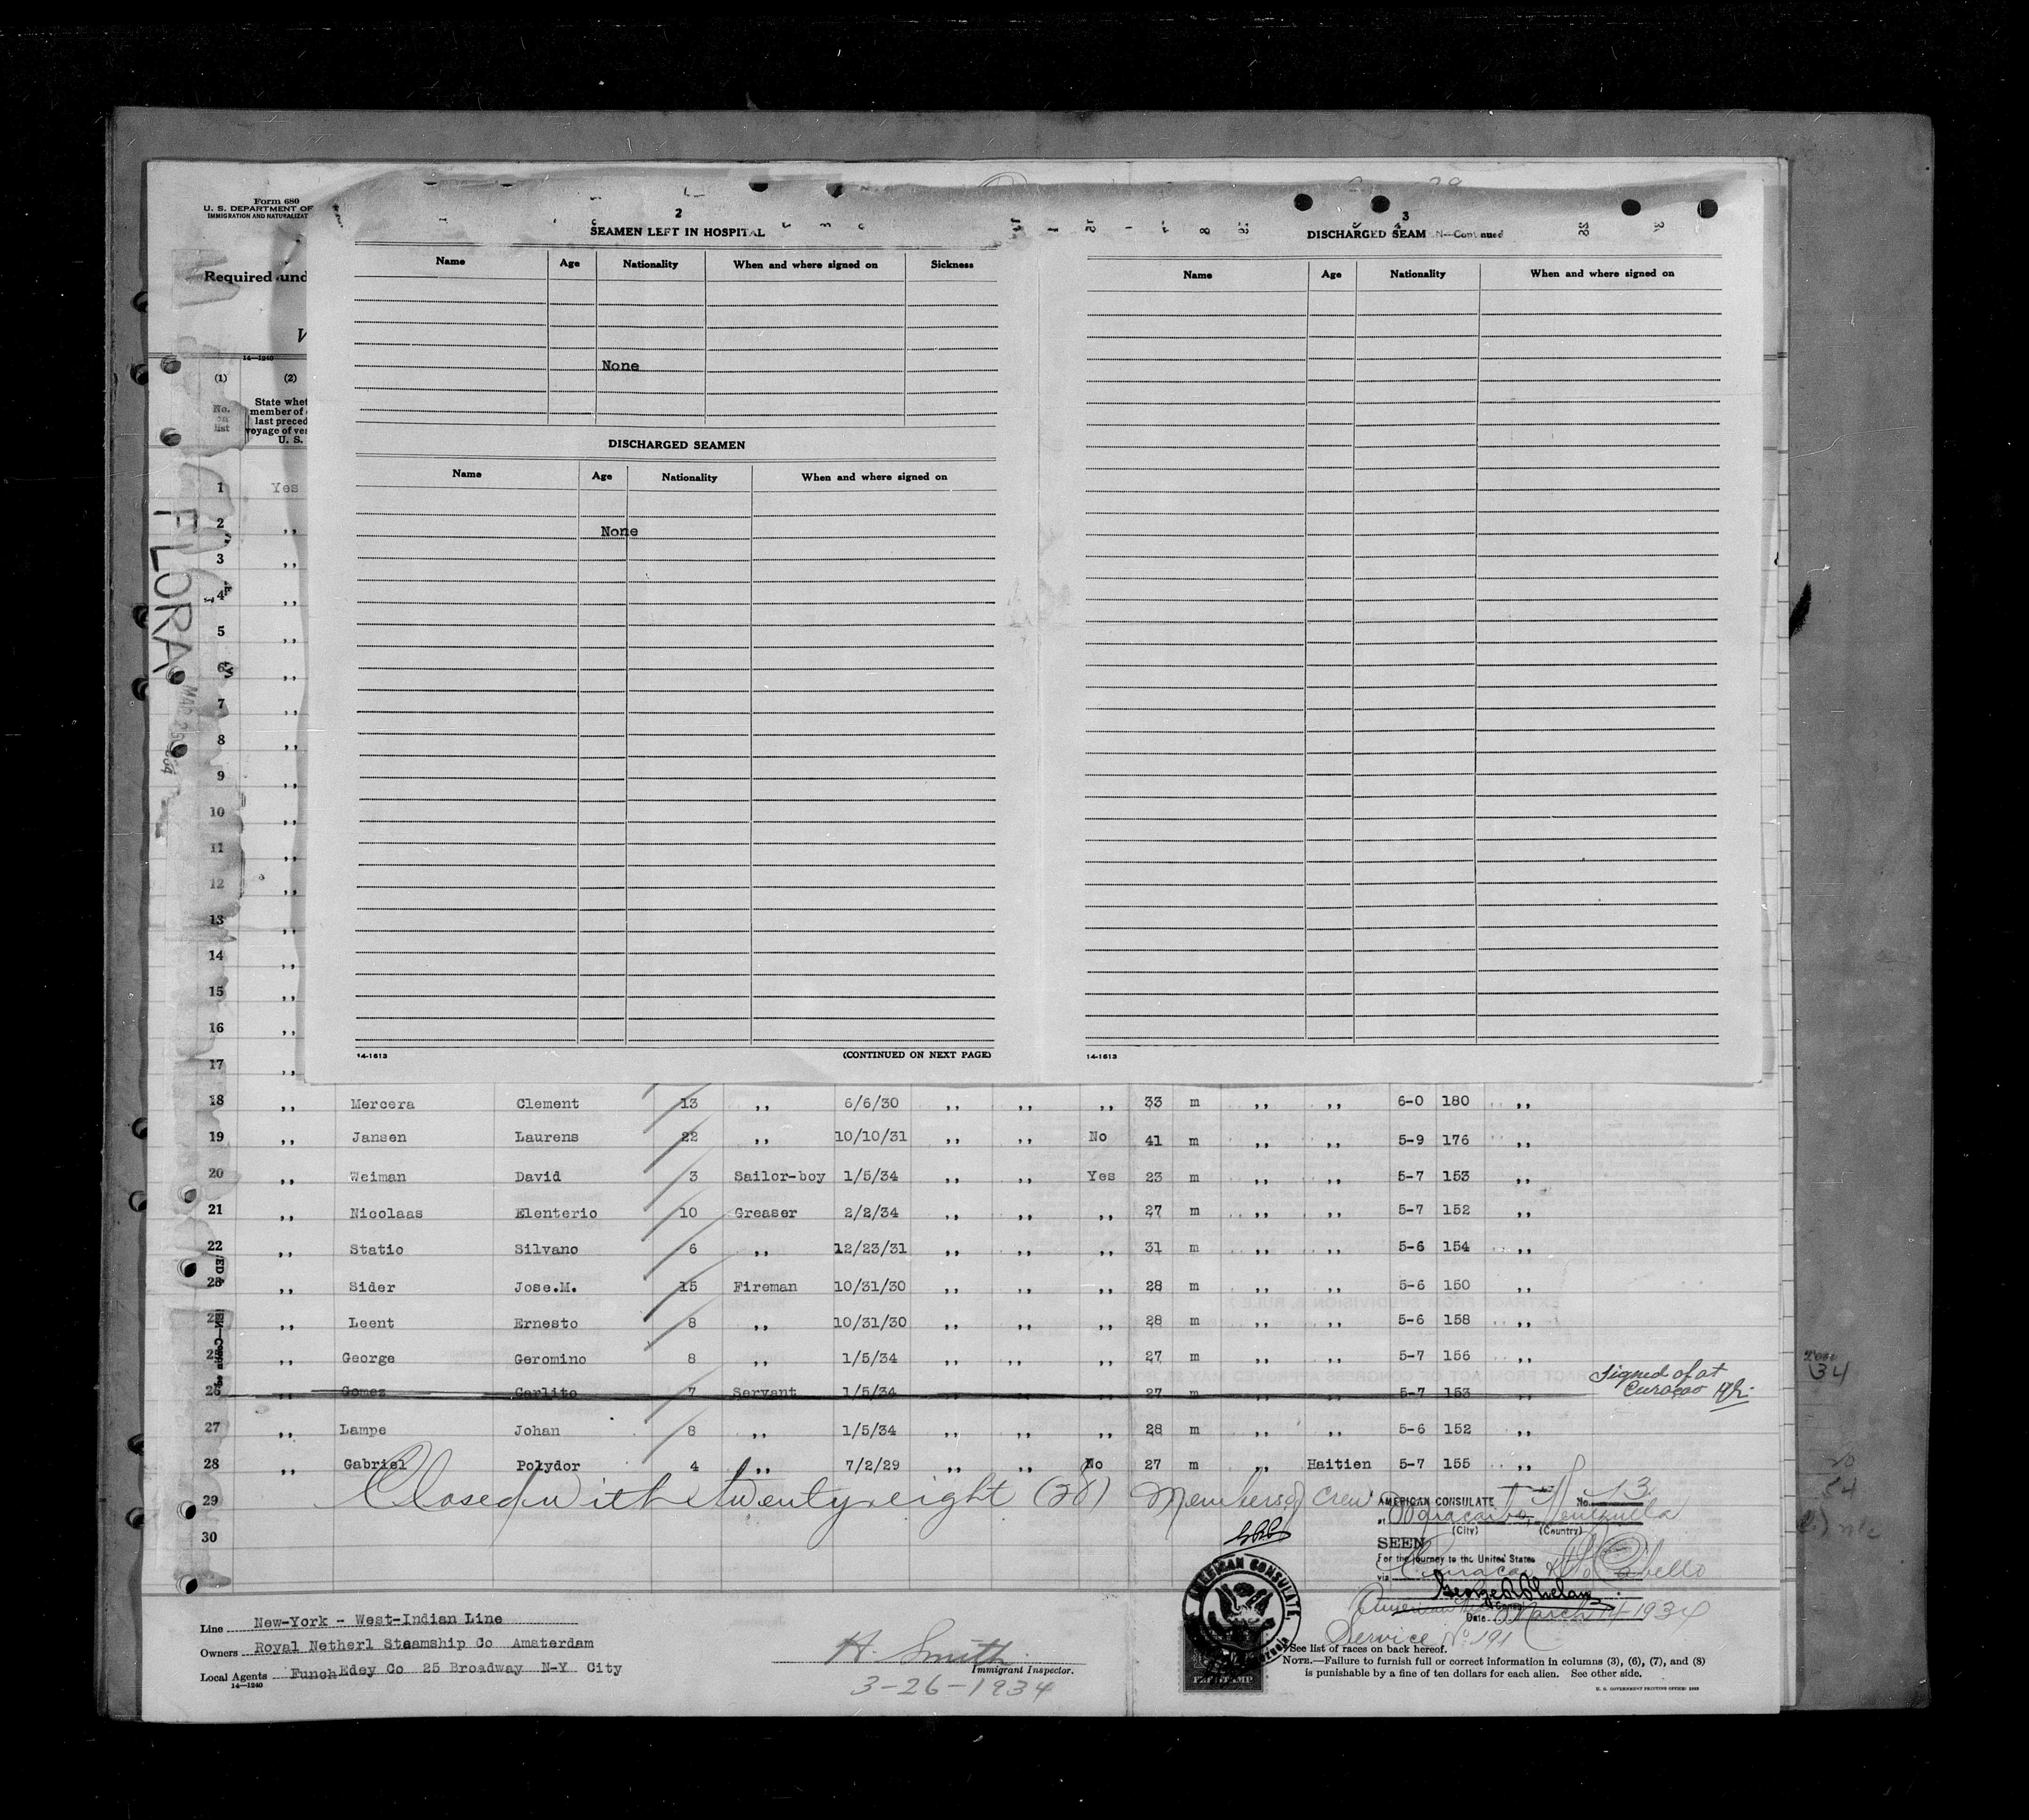 Form 680
U. S. DEPARTMENT OF
IMMIGRATION AND NATURALIZAT
Required und
14—1240
(1) (2)
No. on list
State whet
member of
last preced
voyage of ve
U. S.
FLORA
2
SEAMEN LEFT IN HOSPITAL
Name Age Nationality When and where signed on Sickness
None
DISCHARGED SEAMEN
Name Age Nationality When and where signed on
None
14-1613 (CONTINUED ON NEXT PAGE)
3
DISCHARGED SEAMEN—Continued
Name Age Nationality When and where signed on
14-1613
1 Yes
2 ,,
3 ,,
4 ,,
5 ,,
6 ,,
7 ,,
8 ,,
9 ,,
10 ,,
11 ,,
12 ,,
13 ,,
14 ,,
15 ,,
16 ,,
17 ,,
18 ,, Mercera Clement 13 ,, 6/6/30 ,, ,, ,, 33 m ,, ,, 6-0 180 ,,
19 ,, Jansen Laurens 22 ,, 10/10/31 ,, ,, No 41 m ,, ,, 5-9 176 ,,
20 ,, Weiman David 3 Sailor-boy 1/5/34 ,, ,, Yes 23 m ,, ,, 5-7 153 ,,
21 ,, Nicolaas Elenterio 10 Greaser 2/2/34 ,, ,, ,, 27 m ,, ,, 5-7 152 ,,
22 ,, Statio Silvano 6 ,, 12/23/31 ,, ,, ,, 31 m ,, ,, 5-6 154 ,,
23 ,, Sider Jose.M. 15 Fireman 10/31/30 ,, ,, ,, 28 m ,, ,, 5-6 150 ,,
24 ,, Leent Ernesto 8 ,, 10/31/30 ,, ,, ,, 28 m ,, ,, 5-6 158 ,,
25 ,, George Geromino 8 ,, 1/5/34 ,, ,, ,, 27 m ,, ,, 5-7 156 ,,
26 ,, Gomez Carlito 7 Servant 1/5/34 ,, ,, ,, 27 m ,, ,, 5-7 153 ,, Signed of at Curaçao
27 ,, Lampe Johan 8 ,, 1/5/34 ,, ,, ,, 28 m ,, ,, 5-6 152 ,,
28 ,, Gabriel Polydor 4 ,, 7/2/29 ,, ,, No 27 m ,, Haitien 5-7 155 ,,
29 Closed with twenty eight (28) Members of crew
30
AMERICAN CONSULATE No. 13
at Maracaibo, Venezuela
(City) (Country)
SEEN
For the journey to the United States
via Curacao & Pto Cabello
George R Phelan
American Consul
Date March 14-1934
Service No 191
AMERICAN CONSULATE
FEE STAMP
Line New-York - West-Indian Line
Owners Royal Netherl Steamship Co Amsterdam
Local Agents Funch Edey Co 25 Broadway N-Y City
14—1240
H. Smith
Immigrant Inspector.
3-26-1934
See list of races on back hereof.
NOTE.—Failure to furnish full or correct information in columns (3), (6), (7), and (8)
is punishable by a fine of ten dollars for each alien. See other side.
U. S. GOVERNMENT PRINTING OFFICE: 1933
34